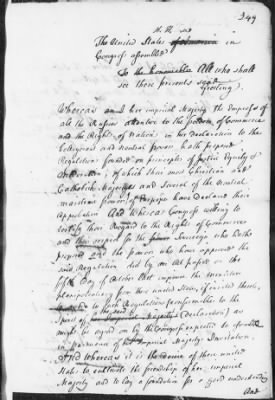 349
The United States in
Congress assembled
To all who shall
see these presents send
Greeting.
Whereas her imperial Majesty the Empress of
all the Russias attentive to the freedom of Commerce
and the Rights of Nations in her declaration to the
belligerent and neutral powers hath proposed
Regulations founded on principles of Justice Equity &
Moderation, of which their most Christian and
Catholic Majesties and several of the neutral
maritime powers of Europe have declared their
approbation And Whereas Congress willing to
testify their Regard to the Rights of Commerce
and their respect for the Sovereign who hath
proposed and the powers who have approved the
said Regulations did by an Act passed on the
fifth day of October last impower the ministers
plenipotentiary from these united States, if invited thereto,
to such Regulations conformable to the
Spirit of the said Declaration as
might be agreed on by the Congress expected to assemble
in pursuance of the Imperial Majesty Invitation.
And whereas it is the desire of these united
States to cultivate the friendship of her imperial
Majesty and to lay a foundation for a good understanding
And